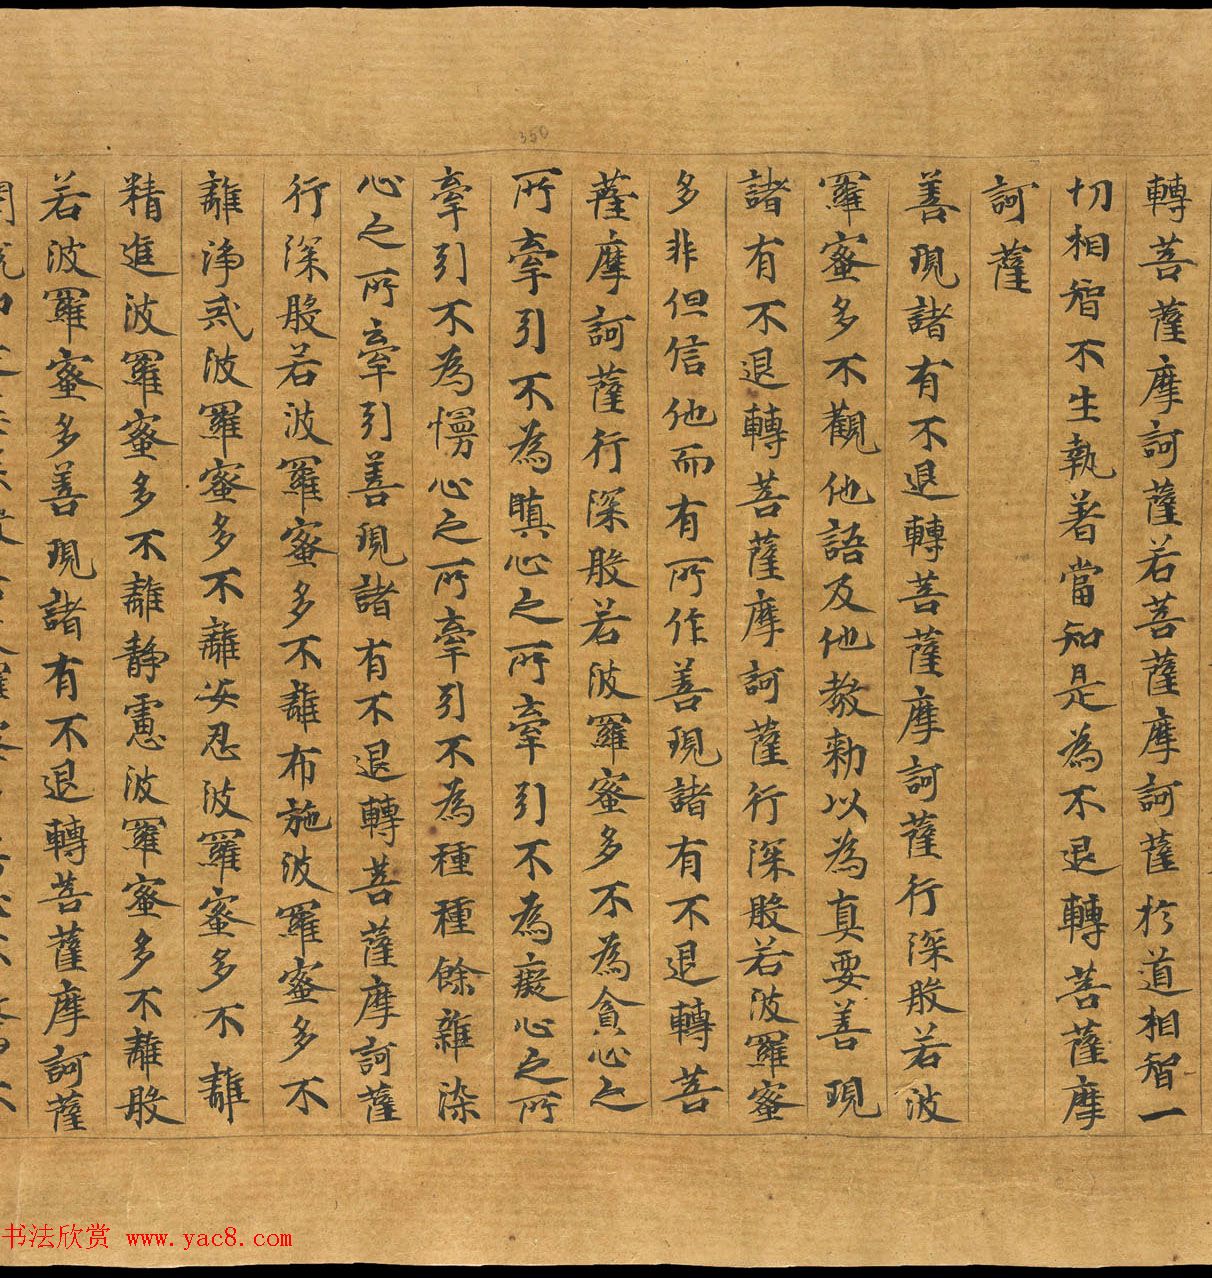 轉菩薩摩訶薩若菩薩摩訶薩於道相智一
切相智不生執著當知是為不退轉菩薩摩
訶薩
善現諸有不退轉菩薩摩訶薩行深般若波
羅蜜多不觀他語及他教勑以為真要善現
諸有不退轉菩薩摩訶薩行深般若波羅蜜
多非但信他而有所作善現諸有不退轉菩
薩摩訶薩行深般若波羅蜜多不為貪心之
所牽引不為瞋心之所牽引不為癡心之所
牽引不為慢心之所牽引不為種種餘雜染
心之所牽引善現諸有不退轉菩薩摩訶薩
行深般若波羅蜜多不離布施波羅蜜多不
離淨戒波羅蜜多不離安忍波羅蜜多不離
精進波羅蜜多不離靜慮波羅蜜多不離般
若波羅蜜多善現諸有不退轉菩薩摩訶薩
350
书法欣赏 www.yac8.com